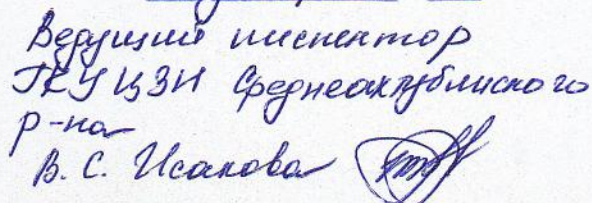 Ведущий инспектор
ГКУ ЦЗН Среднеахтубинского
р-на
В. С. Исакова